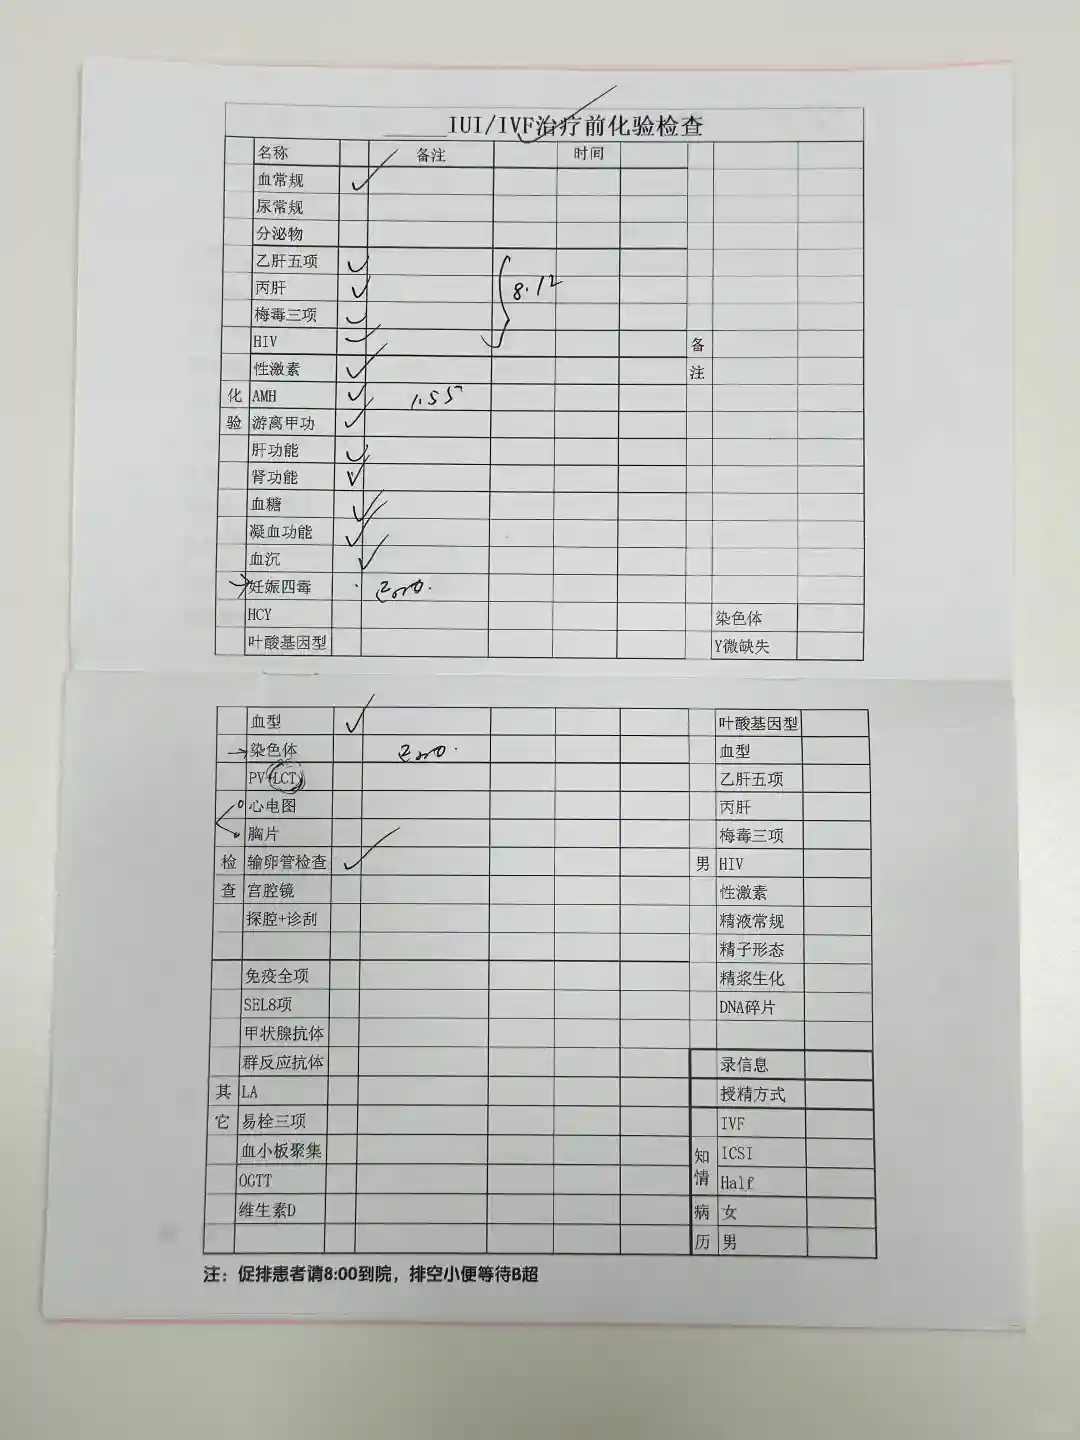 IUI/IVF治疗前化验检查
名称 备注 时间
血常规 ✓
尿常规
分泌物
乙肝五项 ✓
丙肝 ✓ 8.12
梅毒三项 ✓
HIV ✓ 备
性激素 ✓ 注
化 AMH ✓ 1.55
验 游离甲功 ✓
肝功能 ✓
肾功能 ✓
血糖 ✓
凝血功能 ✓
血沉 ✓
→妊娠四毒
HCY 染色体
叶酸基因型 Y微缺失
血型 ✓ 叶酸基因型
→染色体 血型
PV+LCT 乙肝五项
心电图 丙肝
胸片 梅毒三项
检 输卵管检查 ✓ 男 HIV
查 宫腔镜 性激素
探腔+诊刮 精液常规
精子形态
免疫全项 精浆生化
SEL8项 DNA碎片
甲状腺抗体
群反应抗体 录信息
其 LA 授精方式
它 易栓三项 IVF
血小板聚集 知 ICSI
OGTT 情 Half
维生素D 病 女
历 男
注：促排患者请8:00到院，排空小便等待B超